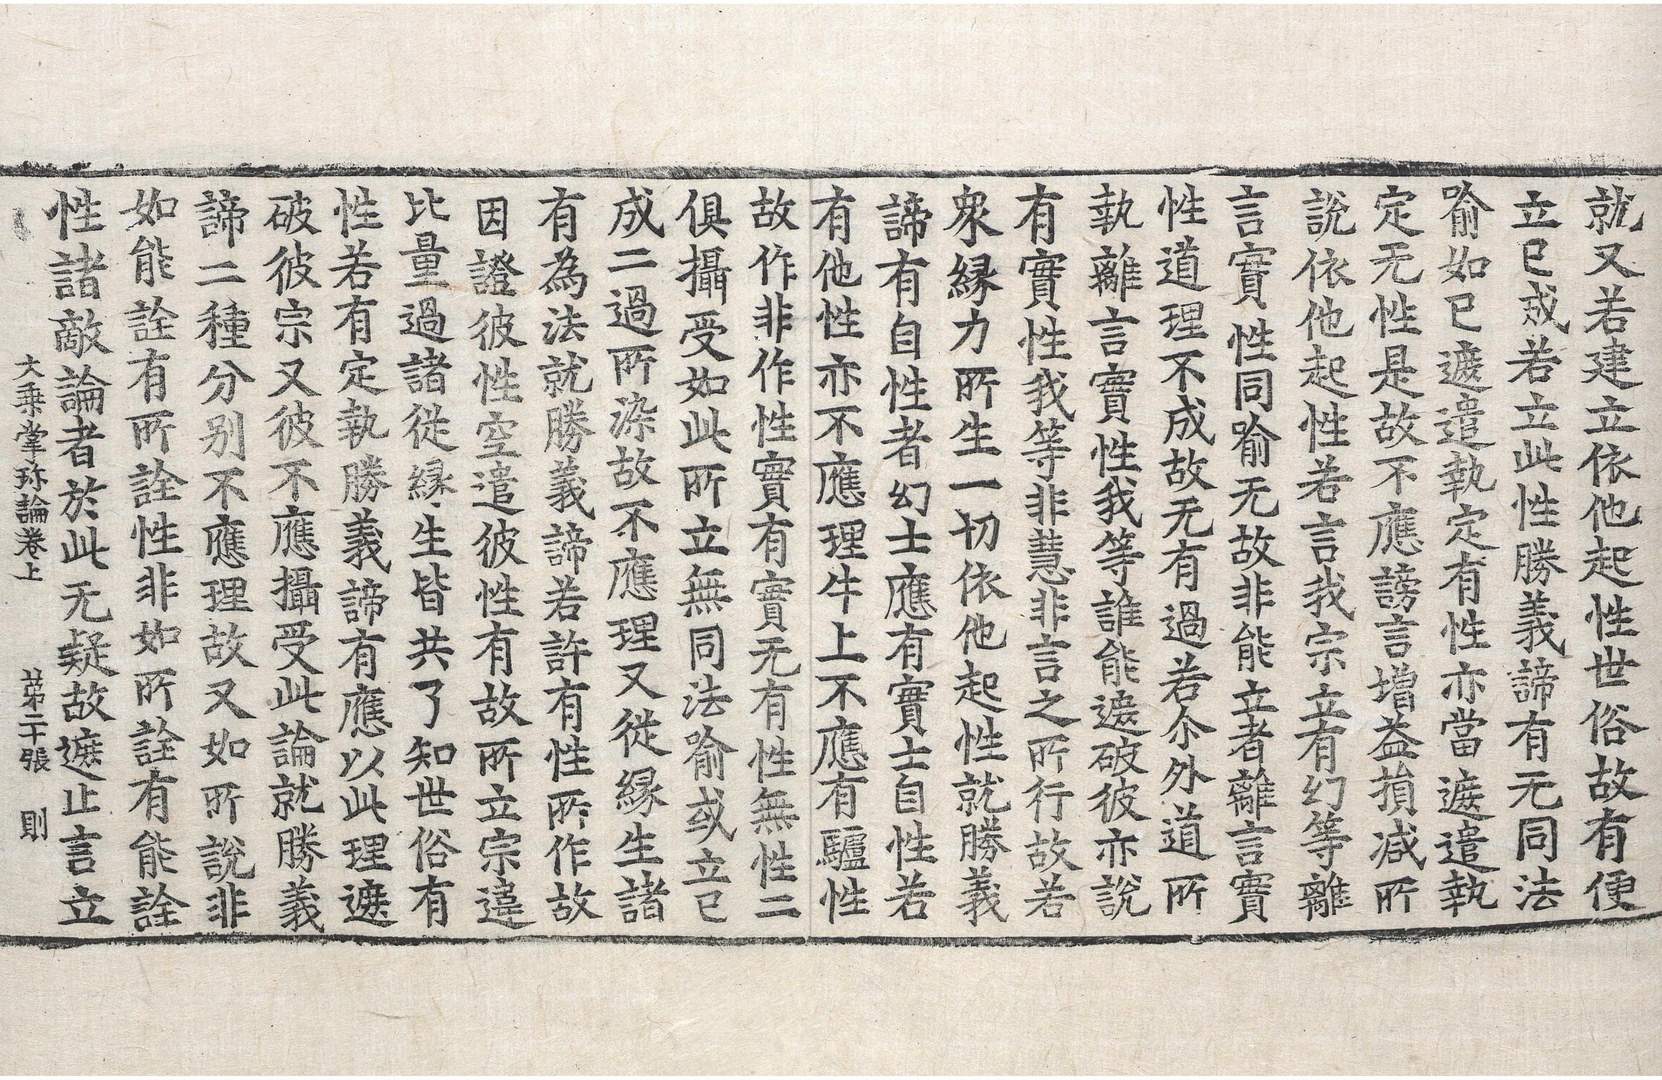 就又若建立依他起性世俗故有便
立已成若立此性勝義諦有无同法
喻如已遮遣執定有性亦當遮遣執
定无性是故不應謗言增益損減所
說依他起性若言我宗立有幻等離
言實性同喻无故非能立者離言實
性道理不成故无有過若尒外道所
執離言實性我等誰能遮破彼亦說
有實性我等非慧非言之所行故若
衆縁力所生一切依他起性就勝義
諦有自性者幻士應有實士自性若
有他性亦不應理牛上不應有驢性
故作非作性實有實无有性無性二
俱攝受如此所立無同法喻或立已
成二過所染故不應理又從縁生諸
有為法就勝義諦若許有性所作故
因證彼性空遣彼性有故所立宗違
比量過諸從縁生皆共了知世俗有
性若有定執勝義諦有應以此理遮
破彼宗又彼不應攝受此論就勝義
諦二種分别不應理故又如所說非
如能詮有所詮性非如所詮有能詮
性諸敵論者於此无疑故遮止言立
大乗掌珎論卷上 第二十張 則